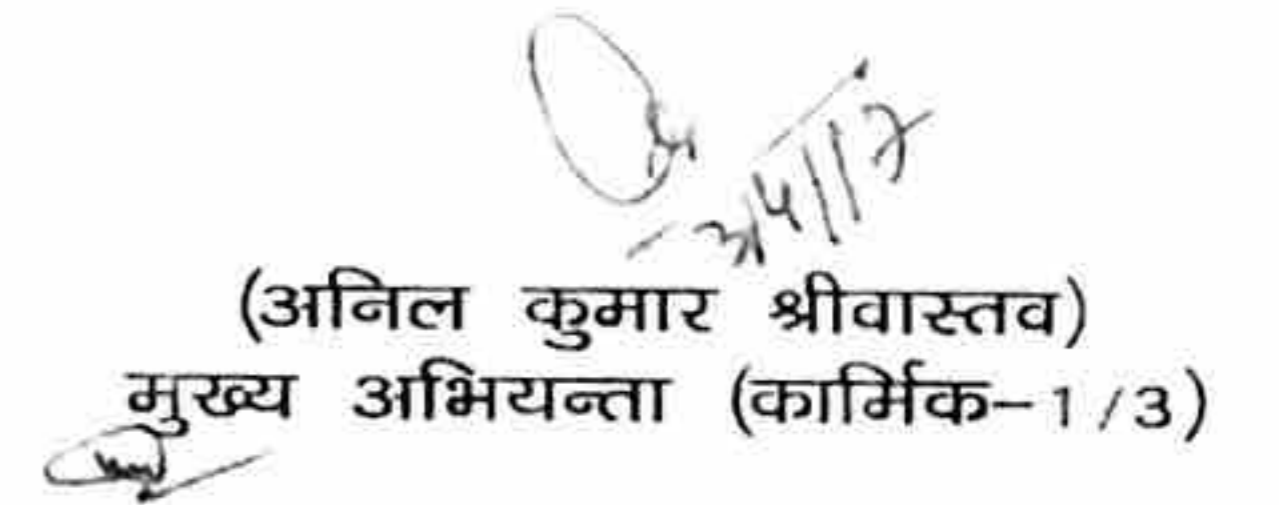 3/4/17
(अनिल कुमार श्रीवास्तव)
मुख्य अभियन्ता (कार्मिक-1/3)